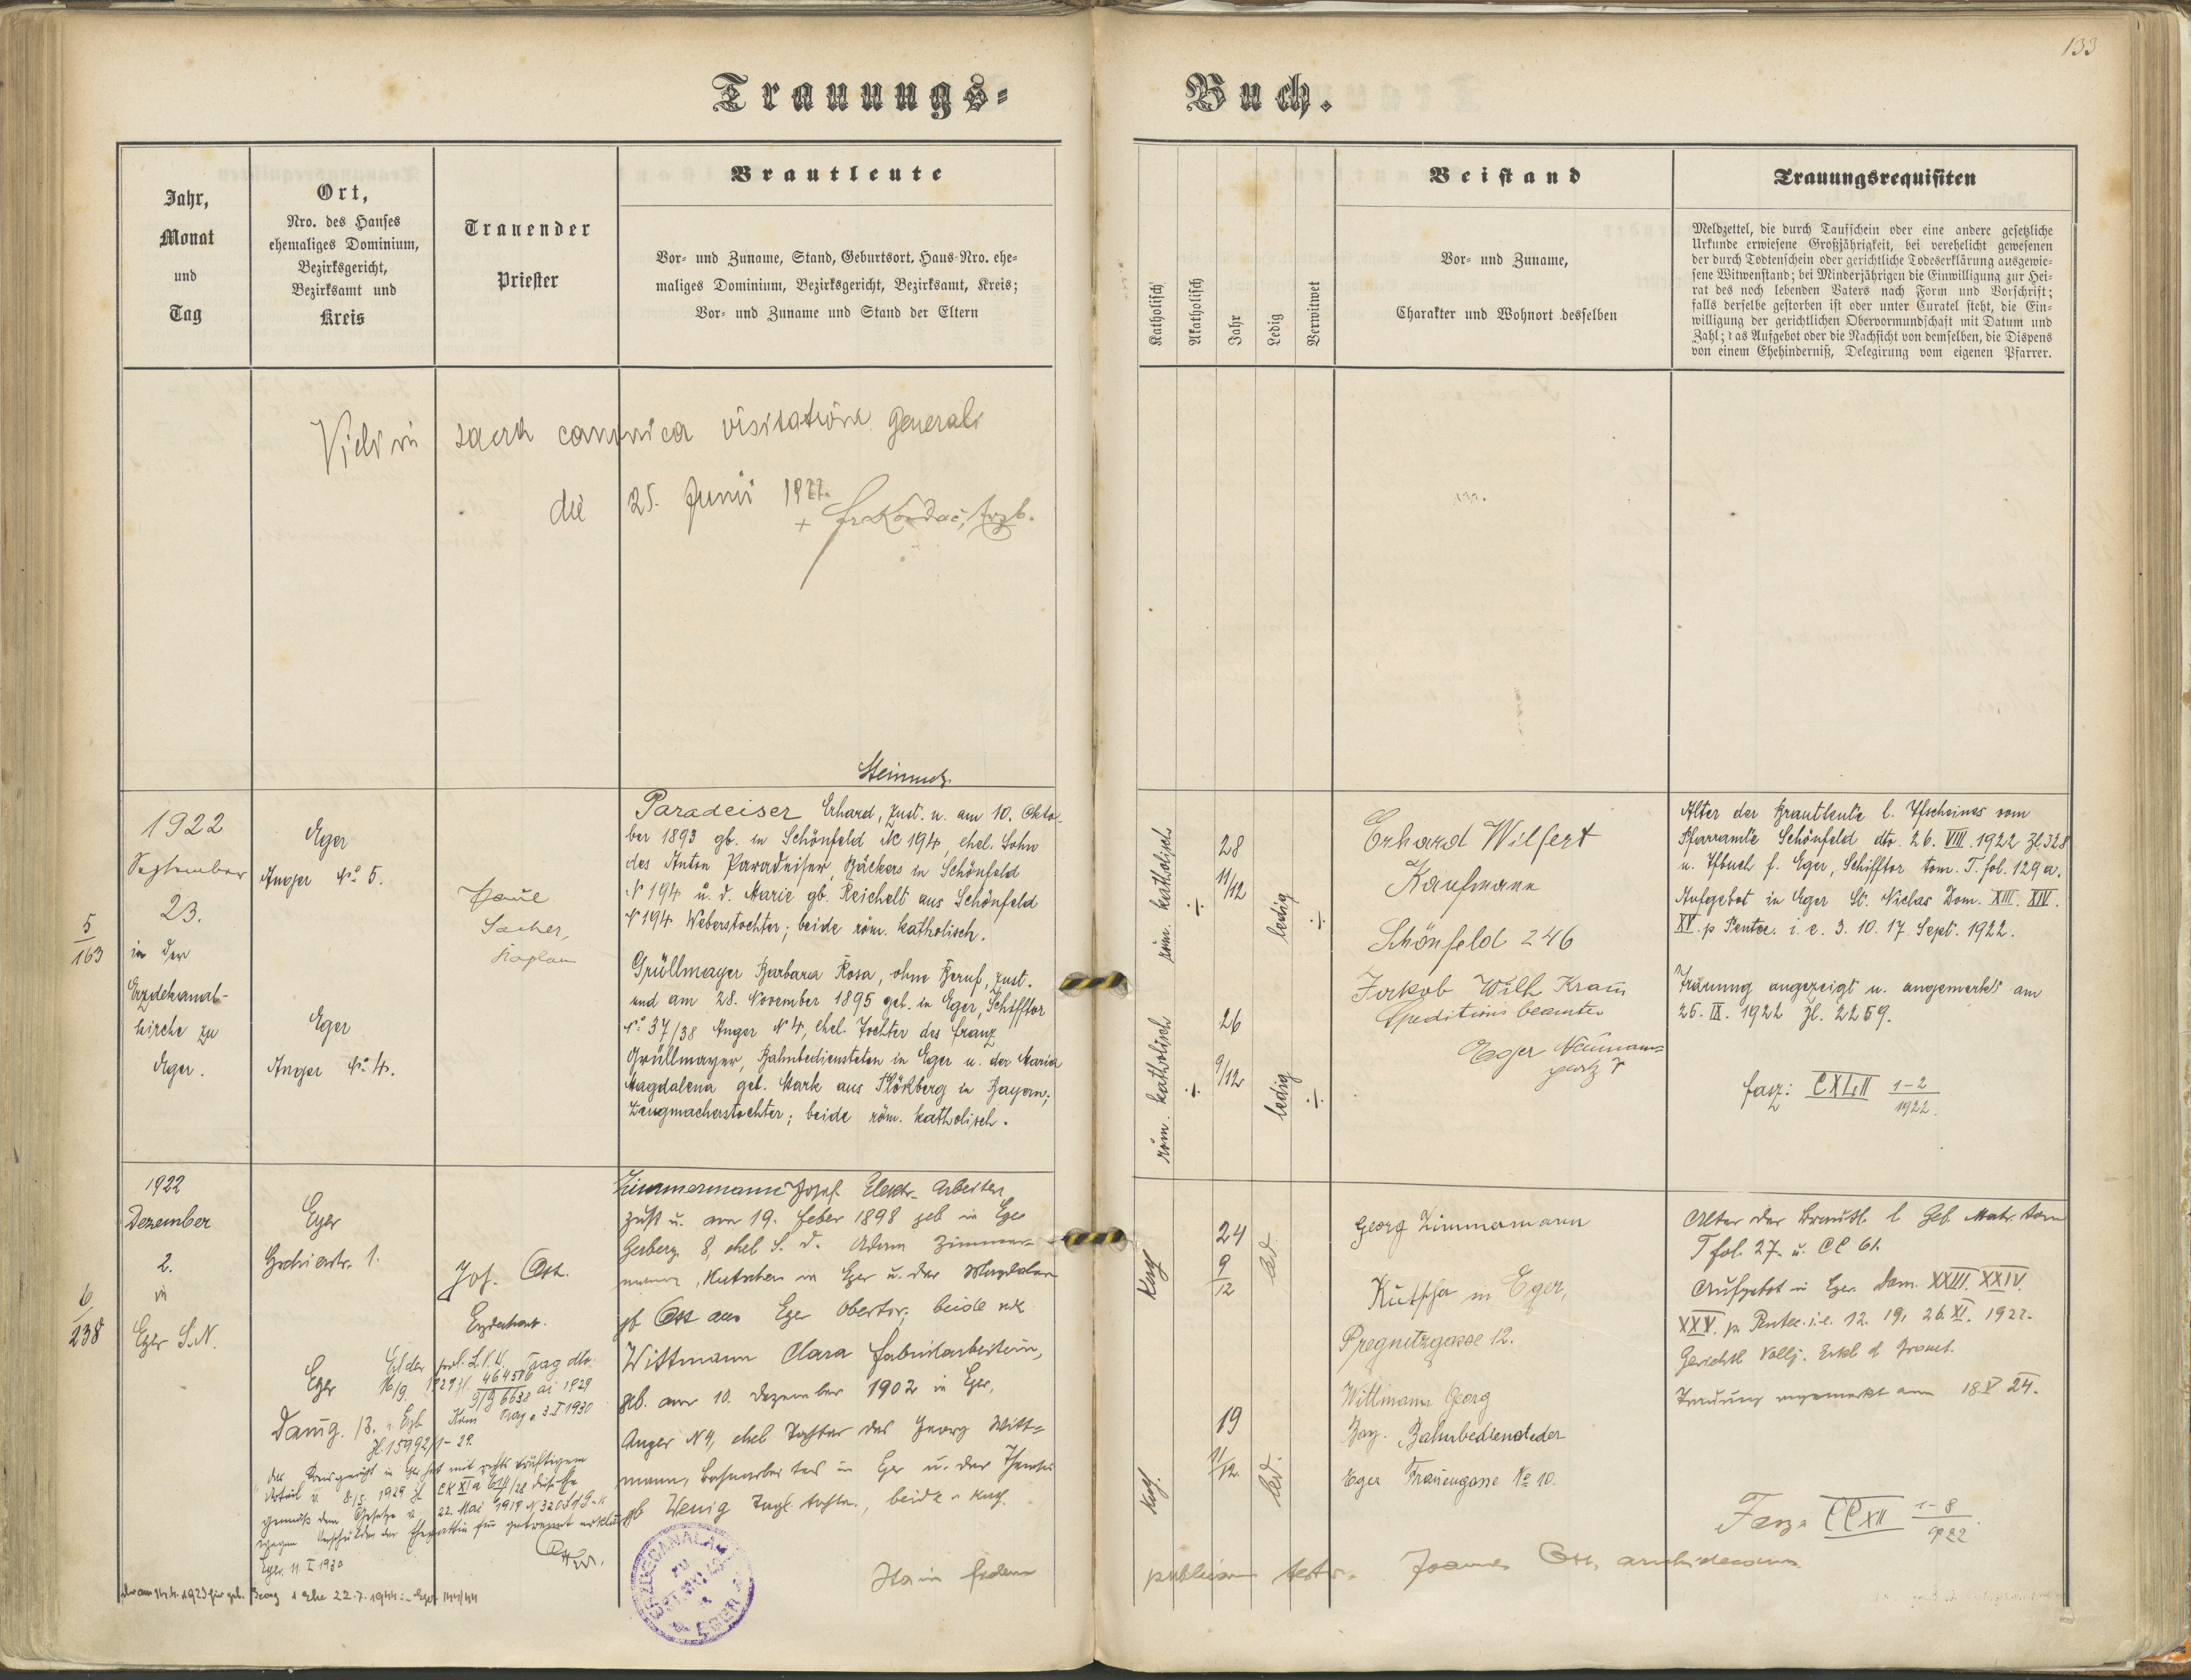 133
Trauungs-
Buch.
Jahr,
Monat
und
Tag
Ort,
Nro. des Hauses
ehemaliges Dominium,
Bezirksgericht,
Bezirksamt und
Kreis
Trauender
Priester
Brautleute
Vor- und Zuname, Stand, Geburtsort, Haus-Nro. ehe-
maliges Dominium, Bezirksgericht, Bezirksamt, Kreis;
Vor- und Zuname und Stand der Eltern
Katholisch
Akatholisch
Jahr
Ledig
Verwitwet
Beistand
Vor- und Zuname,
Charakter und Wohnort desselben
Trauungsrequisiten
Meldzettel, die durch Taufschein oder eine andere gesetzliche
Urkunde erwiesene Großjährigkeit, bei verehelicht gewesenen
der durch Todtenschein oder gerichtliche Todeserklärung ausgewie-
sene Witwenstand; bei Minderjährigen die Einwilligung zur Hei-
rat des noch lebenden Vaters nach Form und Vorschrift;
falls derselbe gestorben ist oder unter Curatel steht, die Ein-
willigung der gerichtlichen Obervormundschaft mit Datum und
Zahl; das Aufgebot oder die Nachsicht von demselben, die Dispens
von einem Ehehinderniß, Delegirung vom eigenen Pfarrer.
sacra canonica visitatione generali
die 25. Junii 1922.
5
163
1922
September
23.
in der
Erzdekanal-
kirche zu
Eger.
Eger
Anger No 5.
Eger
Anger No 4.
Sacher,
Kaplan
Steinmetz
Paradeiser Erhard, zust. u. am 10. Okto-
ber 1893 gb. in Schönfeld Nc 194, ehel. Sohn
des Anton Paradeiser, Bäckers in Schönfeld
N 194 u. d. Marie gb. Reichelt aus Schönfeld
N 194 Weberstochter; beide röm. katholisch.
Grüllmayer Barbara Rosa, ohne Beruf, zust.
und am 28. November 1895 geb. in Eger, Schifftor
No 37/38 Anger N 4, ehel. Tochter des Franz
Grüllmayer, Bahnbediensteten in Eger u. der Maria
Magdalena geb. Stark aus in Bayern;
Zeugmacherstochter; beide röm. katholisch.
röm. katholisch
28
11/12
ledig
röm. katholisch
26
9/12
ledig
Erhard Wilfert
Kaufmann
Schönfeld 246
Jakob Wilh Kraus
Speditions beamter
Eger
Alter der Brautleute l. Tfscheines vom
Pfarramte Schönfeld dto. 26. VIII. 1922 Zl. 328
u. Tfbuch f. Eger, Schifftor tom. T. fol. 129 a.
Aufgebot in Eger St. Niclas Dom. XIII. XIV.
XV. p Pentec. i. e. 3. 10. 17. Sept. 1922.
Trauung angezeigt u. angemerkt am
25. IX. 1922 Zl. 2259.
fasz: CXLII 1-2
1922.
6
238
1922
Dezember
2.
in
Eger S.N.
Eger
1.
Jos. Ott.
Erzdechant.
Zimmermann Josef Elektr. Arbeiter
zust u. am 19. Feber 1898 geb in Eger
Gerberg. 8, ehel S. d. Adam Zimmer-
mann, Kutscher in Eger u. der Magdalena
gb Ott aus Eger Obertor; beide
Wittmann Clara Fabriksarbeiterin,
gb. am 10. Dezember 1902 in Eger,
Anger N 4, ehel Tochter des Georg Witt-
mann, Bahnarbeiters in Eger u. der
gb Wenig Tagl. tochter, beide kath.
kath
24
9
12
led
kath.
19
11/12
led.
Georg Zimmermann
Kutscher in Eger,
Pregnitzgasse 12.
Wittmann Georg
Bay. Bahnbediensteder
Eger Frauengasse No 10.
Alter der Brautl. l Geb. Matr. tom
T fol. 27. u. CC 61.
Aufgebot in Eger Dom. XXIII. XXIV.
XXV. p. Pentec. i. e. 12. 19. 26. XI. 1922.
Trauung angemerkt am 18.V 24.
Fasz. CCXII 1-8
922
Eger
16/9 1929
Eger, 11. I 1930
22.7.1944 Eger 144/44
Ita in fidem
publicam testor. Joannes Ott, archidecanus